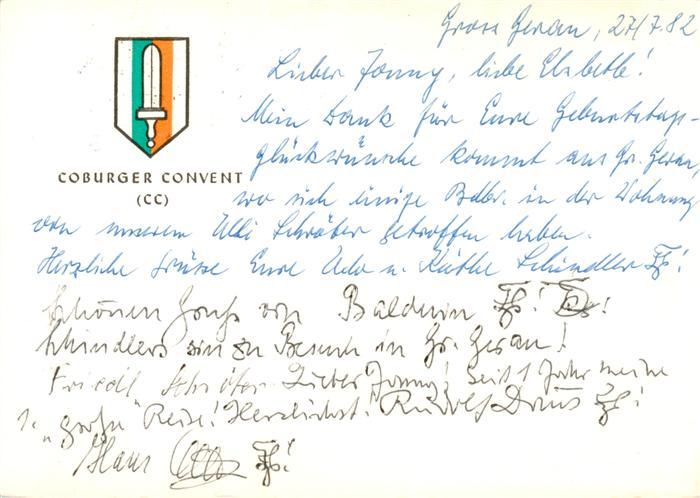 Gross Gerau, 27/7.82
Lieber Jonny, liebe Elsbeth!
Mein Dank für Eure Geburtstags-
glückwünsche kommt aus Gr. Gerau,
COBURGER CONVENT
(CC)
wo sich einige Bdbr. in der Wohnung
von unserem Ulli Schröter getroffen haben.
Herzliche Grüsse Eure Udo u. Käthe Schindler
Schönen Gruß von Baldwin
Schindlers sin zu Besuch in Gr. Gerau!
Friedl Schröter Lieber Jonny! Seit 1 Jahr meine
1. "große" Reise! Herzlichst! Rudolf
Hans